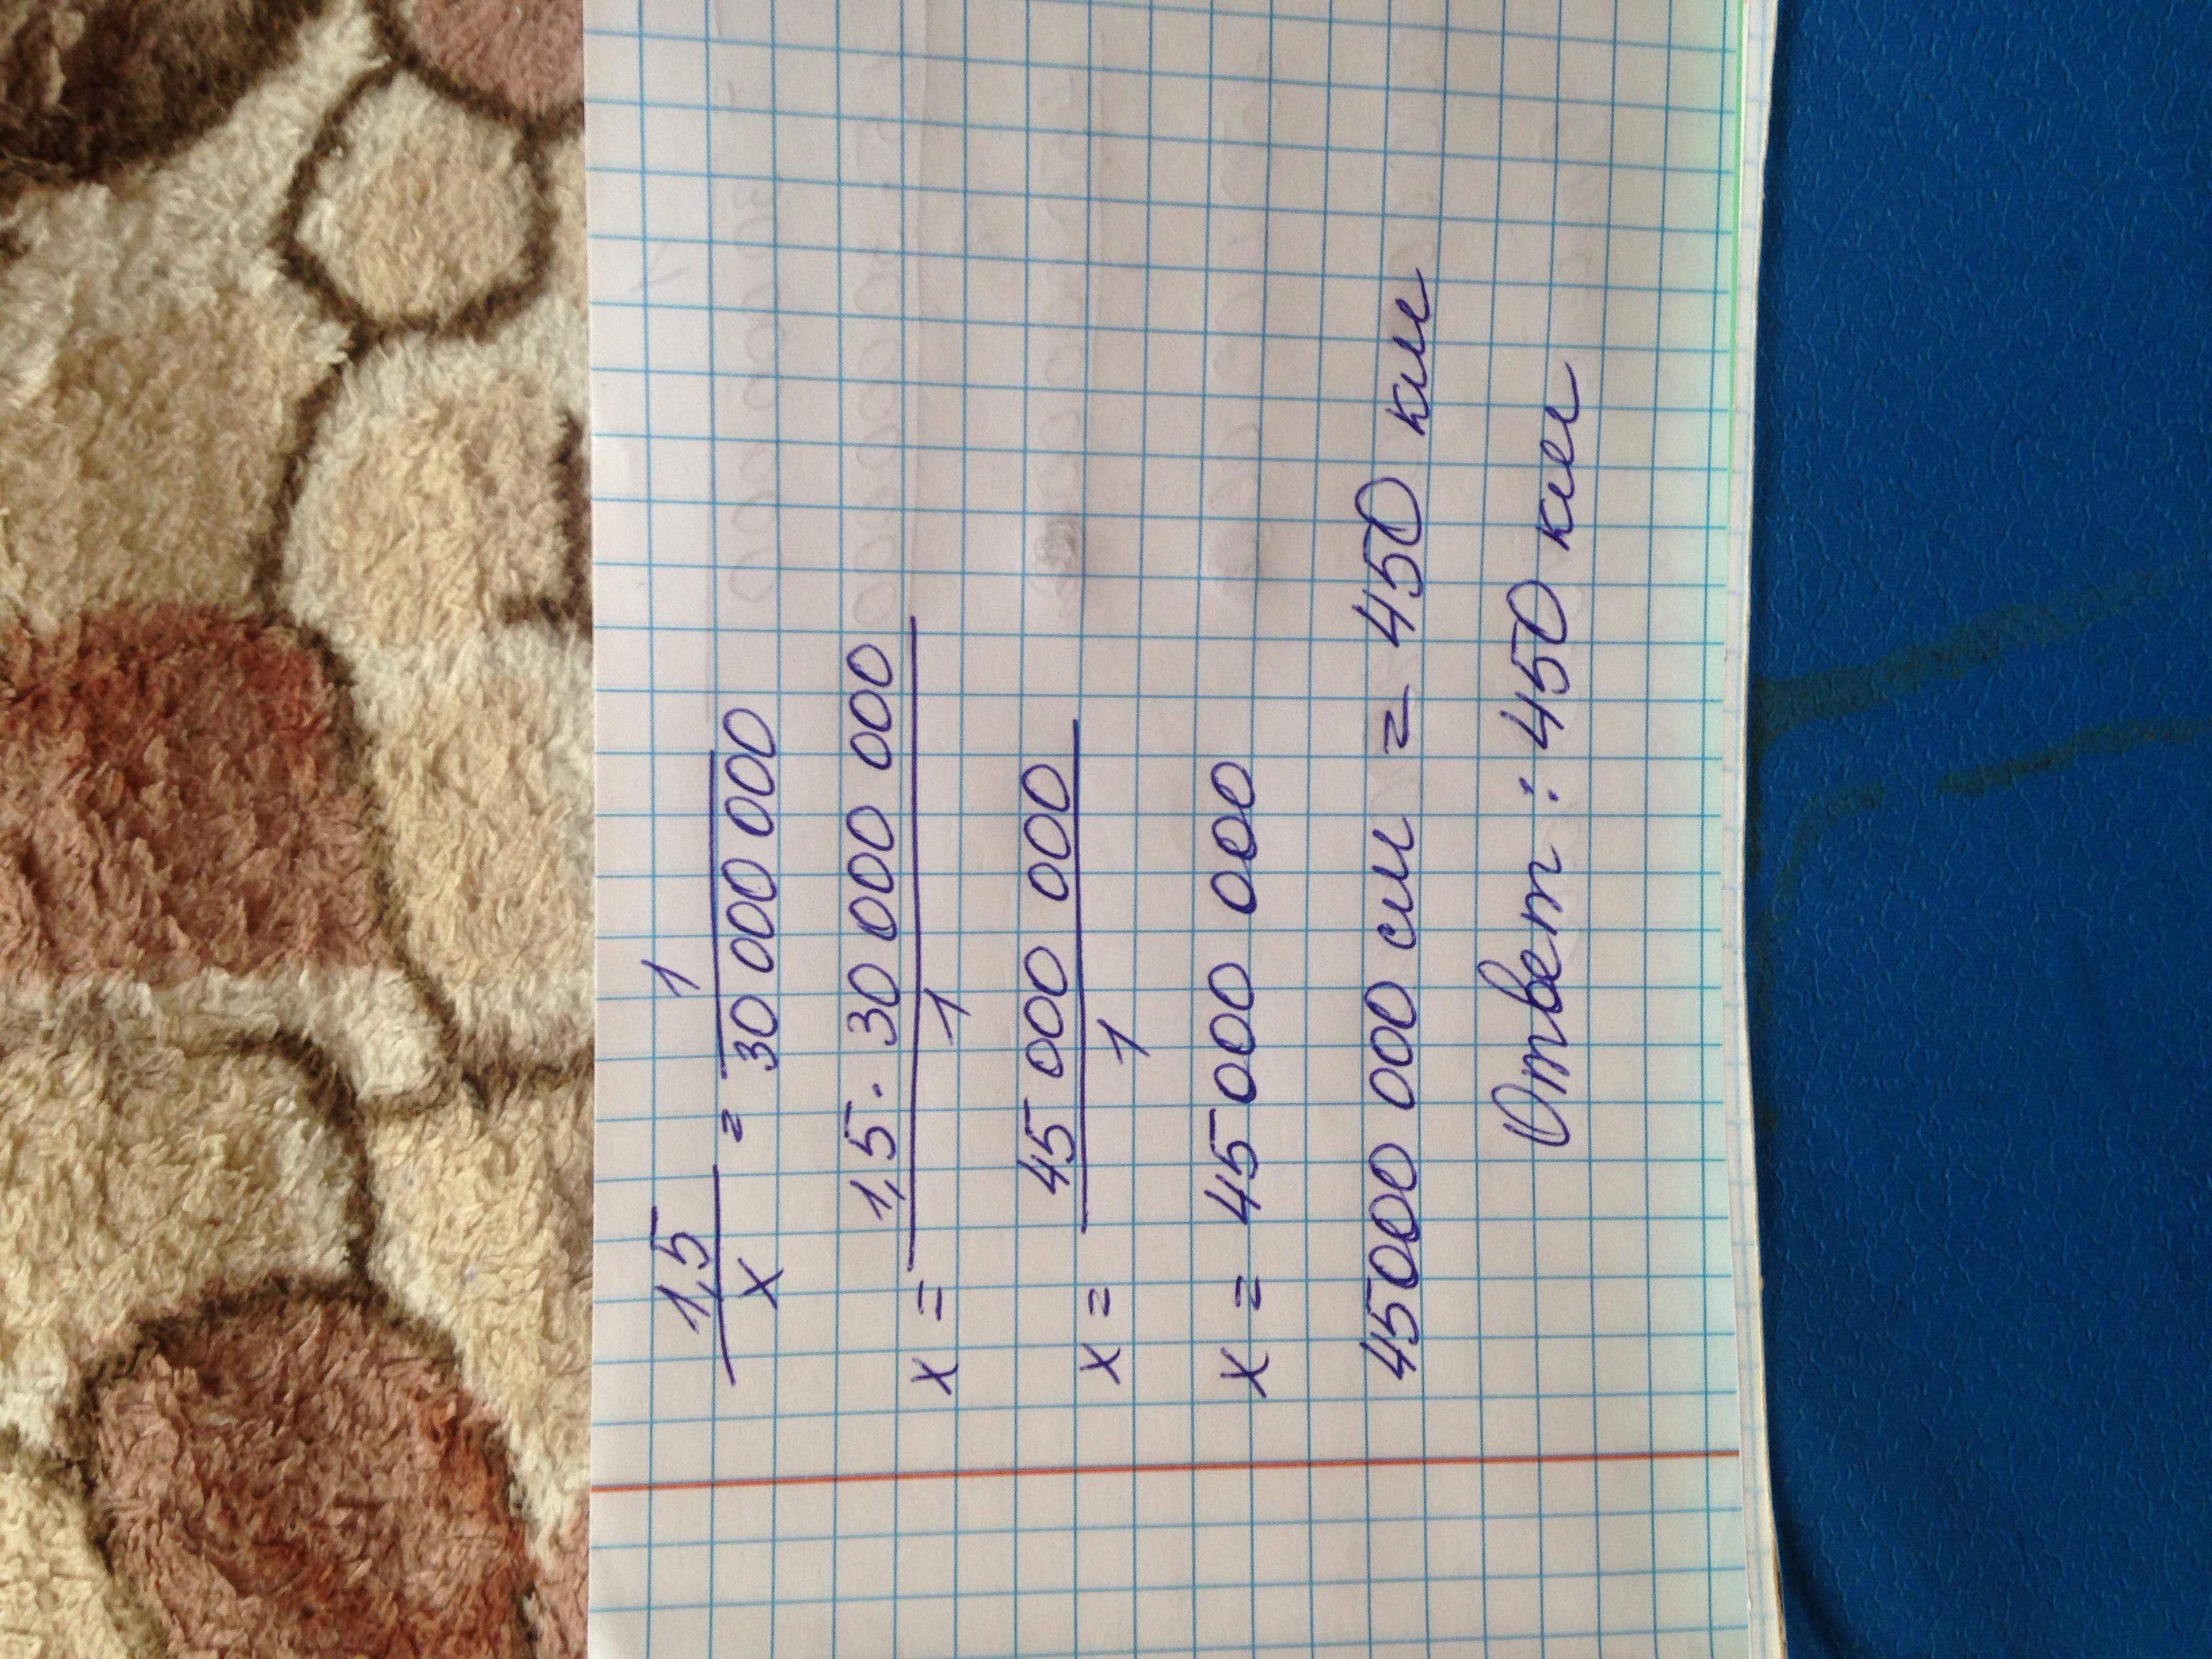 1,5/x = 1/30 000 000
x = 1,5 · 30 000 000/1
x = 45 000 000/1
x = 45 000 000
45000 000 см = 450 км
Ответ: 450 км